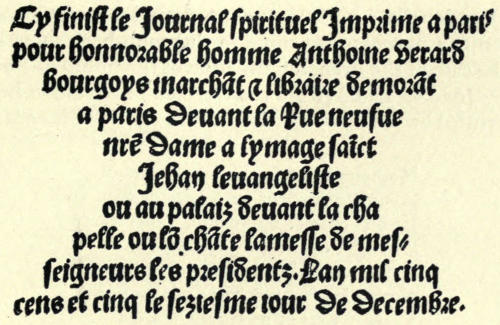 Cy finist le Journal spirituel Imprime a paris
pour honnorable homme Anthoine Verard
bourgoys marchāt ⁊ libraire demorāt
a paris Devant la Rue neufue
nr̄e Dame a lymage sait̄ct
Jehan levangeliste
ou au palaiz devant la cha
pelle ou lō chāte lamesse de mes⸗
seigneurs les presidentz. Lan mil cinq
cens et cinq le seziesme iour De Decembre.